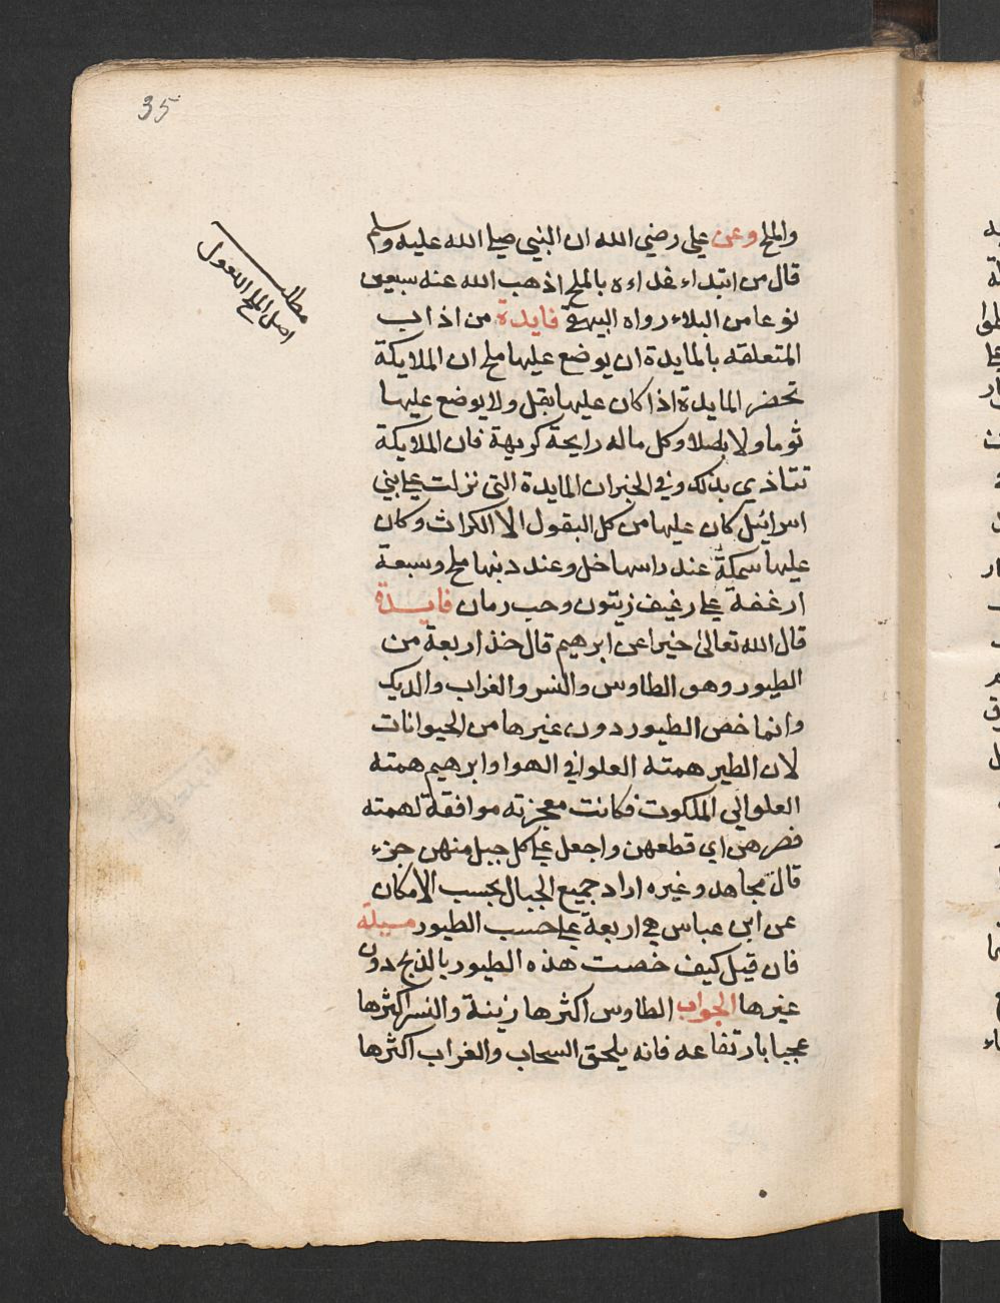 35
والملح وعن علي رضي الله ان النبي صلي الله عليه وسلم
قال من ابتداء غداءه بالملح اذهب الله عنه سبعين
نوعا من البلاء رواه البيهقي فايدة من اداب
المتعلقه بالمايدة ان يوضع عليها ملح ان الملايكة
تحضر المايدة اذا كان عليها بقل ولا يوضع عليها
ثوما ولا بصلا وكل ماله رايحة كريهة فان الملايكة
تتاذي بذلك وفي الخبر ان المايدة التي نزلت علي بني
اسرائيل كان عليها من كل البقول الا الكراث وكان
عليها سمكة عند راسها خل وعند دنبها ملح وسبعة
ارغفة علي رغيف زيتون وحب رمان فايدة
قال الله تعالى خبرا عن ابرهيم قال خذ اربعة من
الطيور وهو الطاوس والنسر والغراب والديك
وانما خص الطيور دون غيرها من الحيوانات
لان الطير همته العلو في الهوا وابرهيم همته
العلو الي الملكوت فكانت معجزته موافقة لهمته
فصرهن اي قطعهن واجعل علي كل جبل منهن جزء
قال مجاهد وغيره اراد جميع الجبال بحسب الامكان
عن ابن عباس هي اربعة علي حسب الطيور مسيلة
فان قيل كيف خصت هذه الطيور بالذبح دون
غيرها الجواب الطاوس اكثرها زينة والنسر اكثرها
عجبا بارتفاعه فانه يلحق السحاب والغراب اكثرها
مطلب
اصل الملح